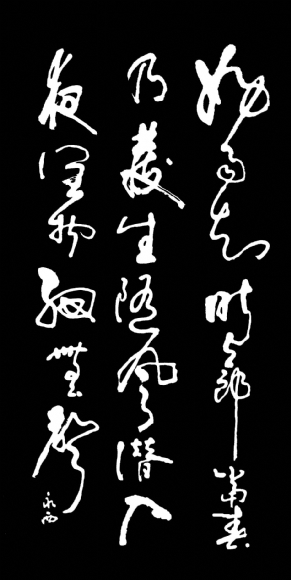 好雨知時節當春
乃發生隨風潛入
夜潤物細無聲